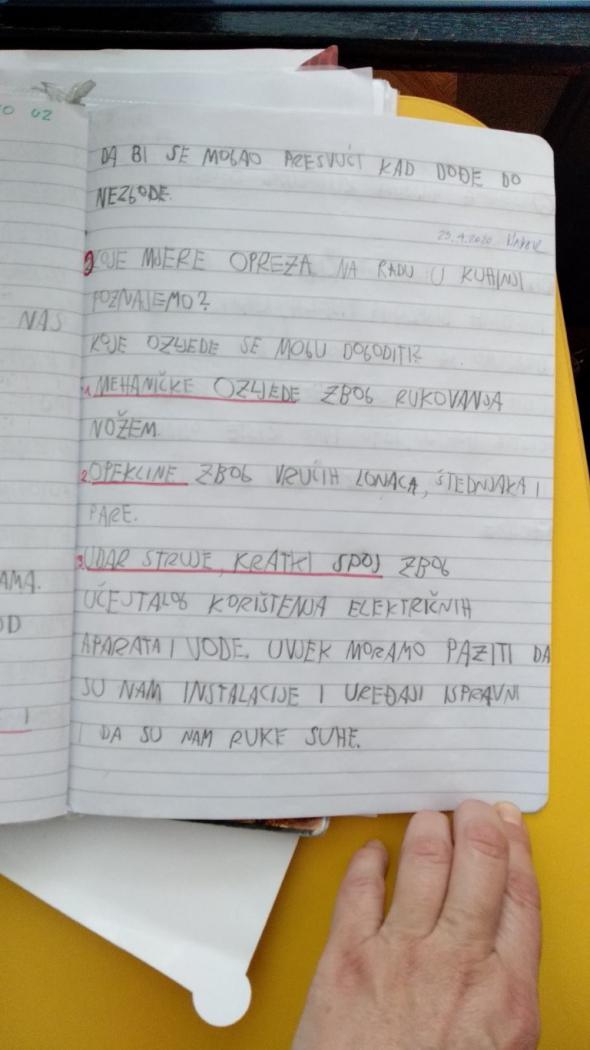 O UZ
NAS
AMA.
OD
I
DA BI SE MOGAO PRESVUĆI KAD DOĐE DO
NEZGODE.
23.4.2020
KOJE MJERE OPREZA NA RADU U KUHINJI
POZNAJEMO?
KOJE OZLJEDE SE MOGU DOGODITI?
1. MEHANIČKE OZLJEDE ZBOG RUKOVANJA
NOŽEM.
2. OPEKLINE ZBOG VRUĆIH LONACA, ŠTEDNJAKA I
PARE.
3. UDAR STRUJE, KRATKI SPOJ ZBOG
UČESTALOG KORIŠTENJA ELEKTRIČNIH
APARATA I VODE. UVJEK MORAMO PAZITI DA
SU NAM INSTALACIJE I UREĐAJI ISPRAVNI
I DA SU NAM RUKE SUHE.